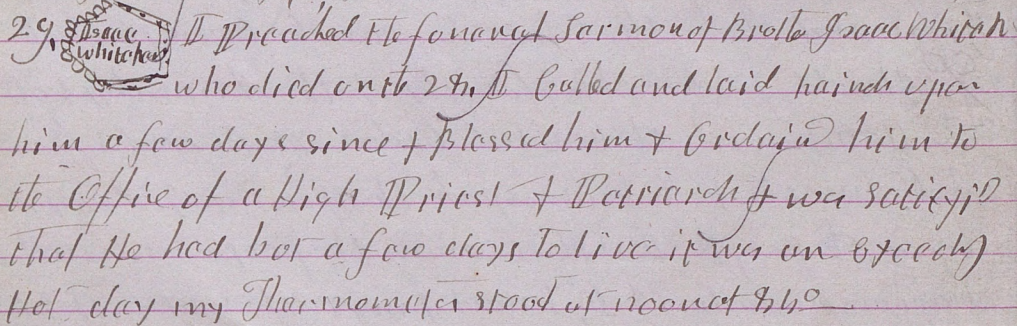 29. Isaac Whitehead I Preached the funeral Sarmon of Broth Isaac Whiteh
who died on the 28, I Called and laid hainds upon
him a few days since & Blessed him & Ordaind him to
the Office of a High Priest & Patriarch I was satisfyd
that He had but a few days to live it was an exceedg
Hot day my Tharmometer stood at noon at 84°